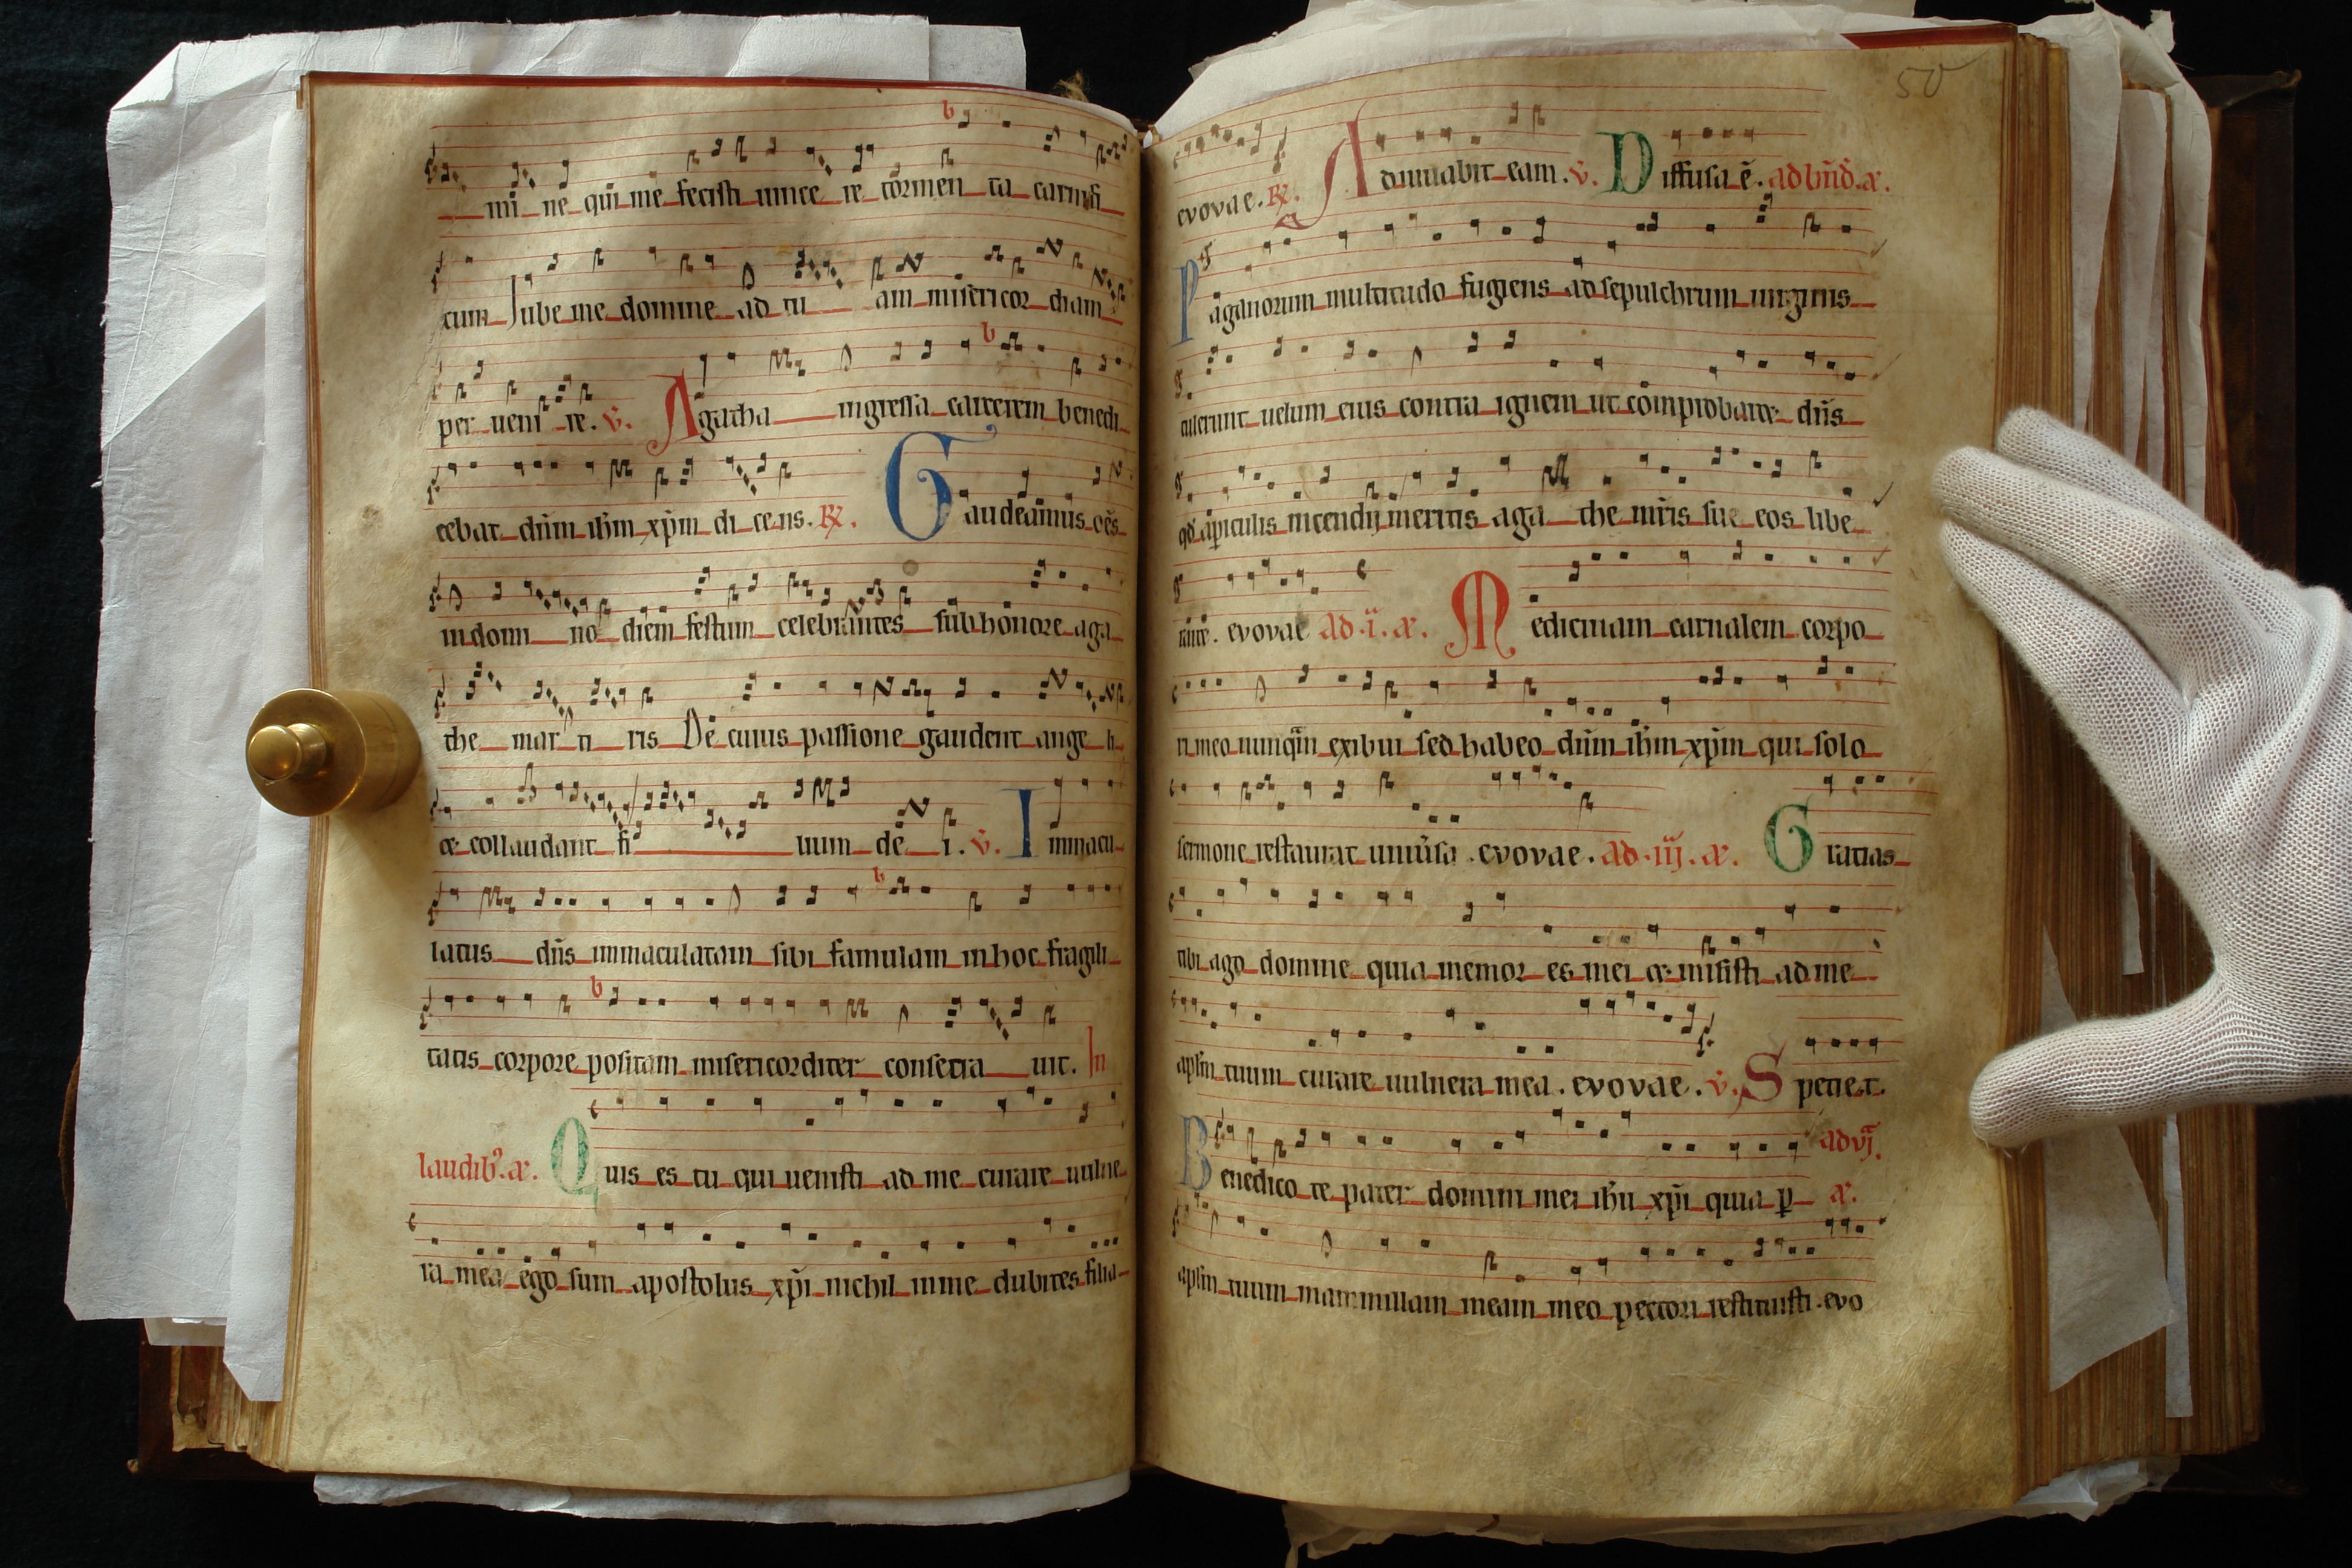 mi ne qui me fecisti uince re tormen ta carnifi
cum Iube me domine ad tu am misericor diam
per ueni re. v. Agatha ingressa carcerem benedi
cebat dn̄m ih̄m xp̄m di cens. R. Gaudeamus oēs
in domi no diem festum celebrantes sub honore aga
the mar ti ris De cuius passione gaudent ange li
et collaudant fi lium de i. v. Immacu
latus dn̄s immaculatam sibi famulam in hoc fragili
tatis corpore positam misericorditer consecra uit. In
laudib᷒. a. Quis es tu qui uenisti ad me curare uulne
ra mea ego sum apostolus xp̄i nichil in me dubites filia
50
evovae. R. Adiuuabit eam. v. Diffusa ē. ad bn̄d. a.
Paganorum multitudo fugiens ad sepulchrum uirginis
tulerunt uelum eius contra ignem ut comprobaret dn̄s
qd̄ a piculis incendij meritis aga the mr̄is sue eos libe
raret. evovae ad .i. a. Medicinam carnalem corpo
ri meo nunq̄m exibui sed habeo dn̄m ih̄m xp̄m qui solo
sermone restaurat uniūsa. evovae. ad .iij. a. Gratias
tibi ago domine quia memor es mei et misisti ad me
apl̄m tuum curare uulnera mea. evovae. v. Specie.t.
Benedico te pater domini mei ih̄u xp̄i quia p ad vj. a.
apl̄m tuum mammillam meam meo pectori restituisti. evo